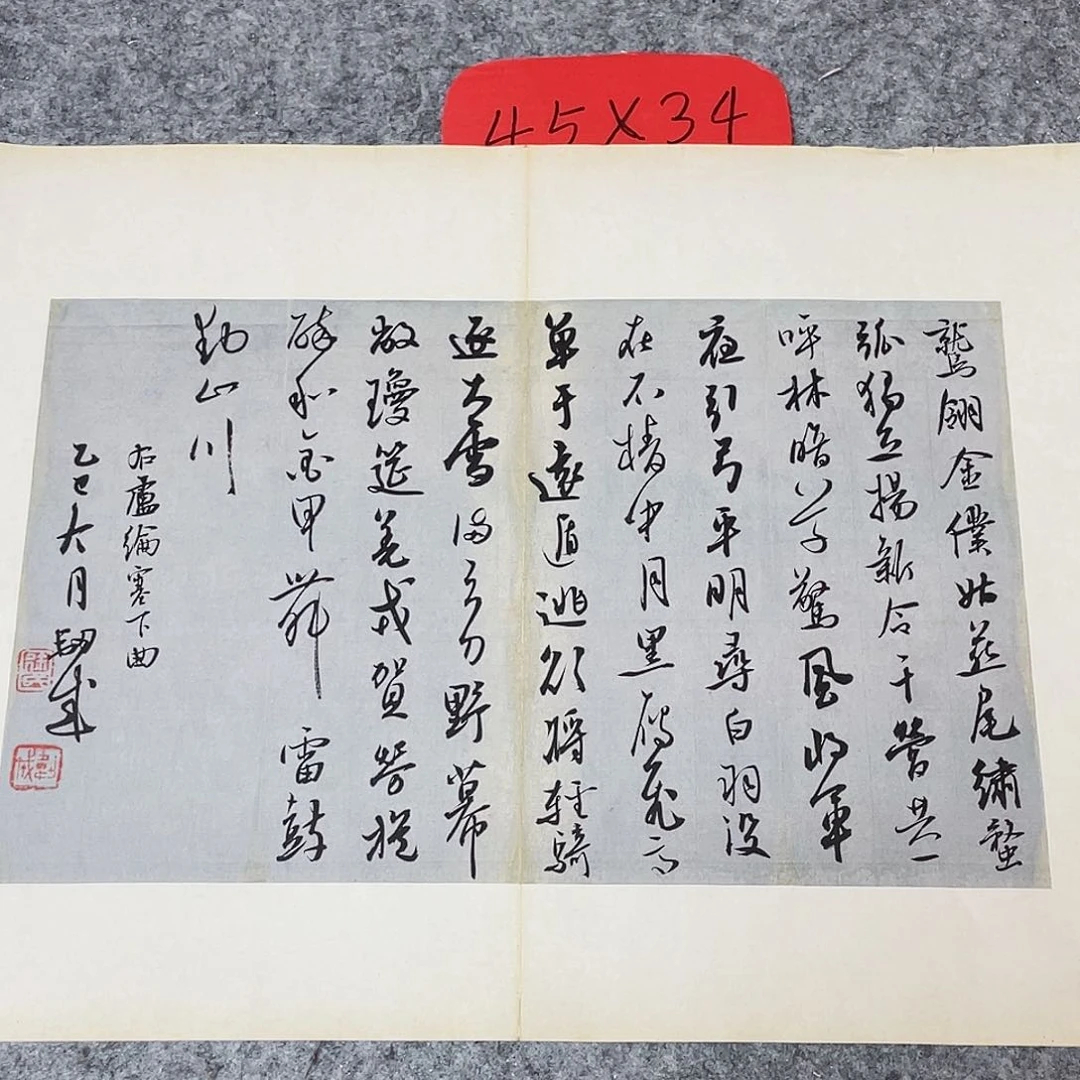 45X34
鷲翎金僕姑燕尾繡蝥
弧獨立揚新令千營共一
呼林暗草驚風將軍
夜引弓平明尋白羽没
在石棱中月黑雁飛高
單于遠遁逃欲將輕騎
逐大雪滿弓刀野幕
敞瓊筵羌戎賀勞旋
醉和金甲舞雷鼓
動山川
右盧綸塞下曲
乙巳六月